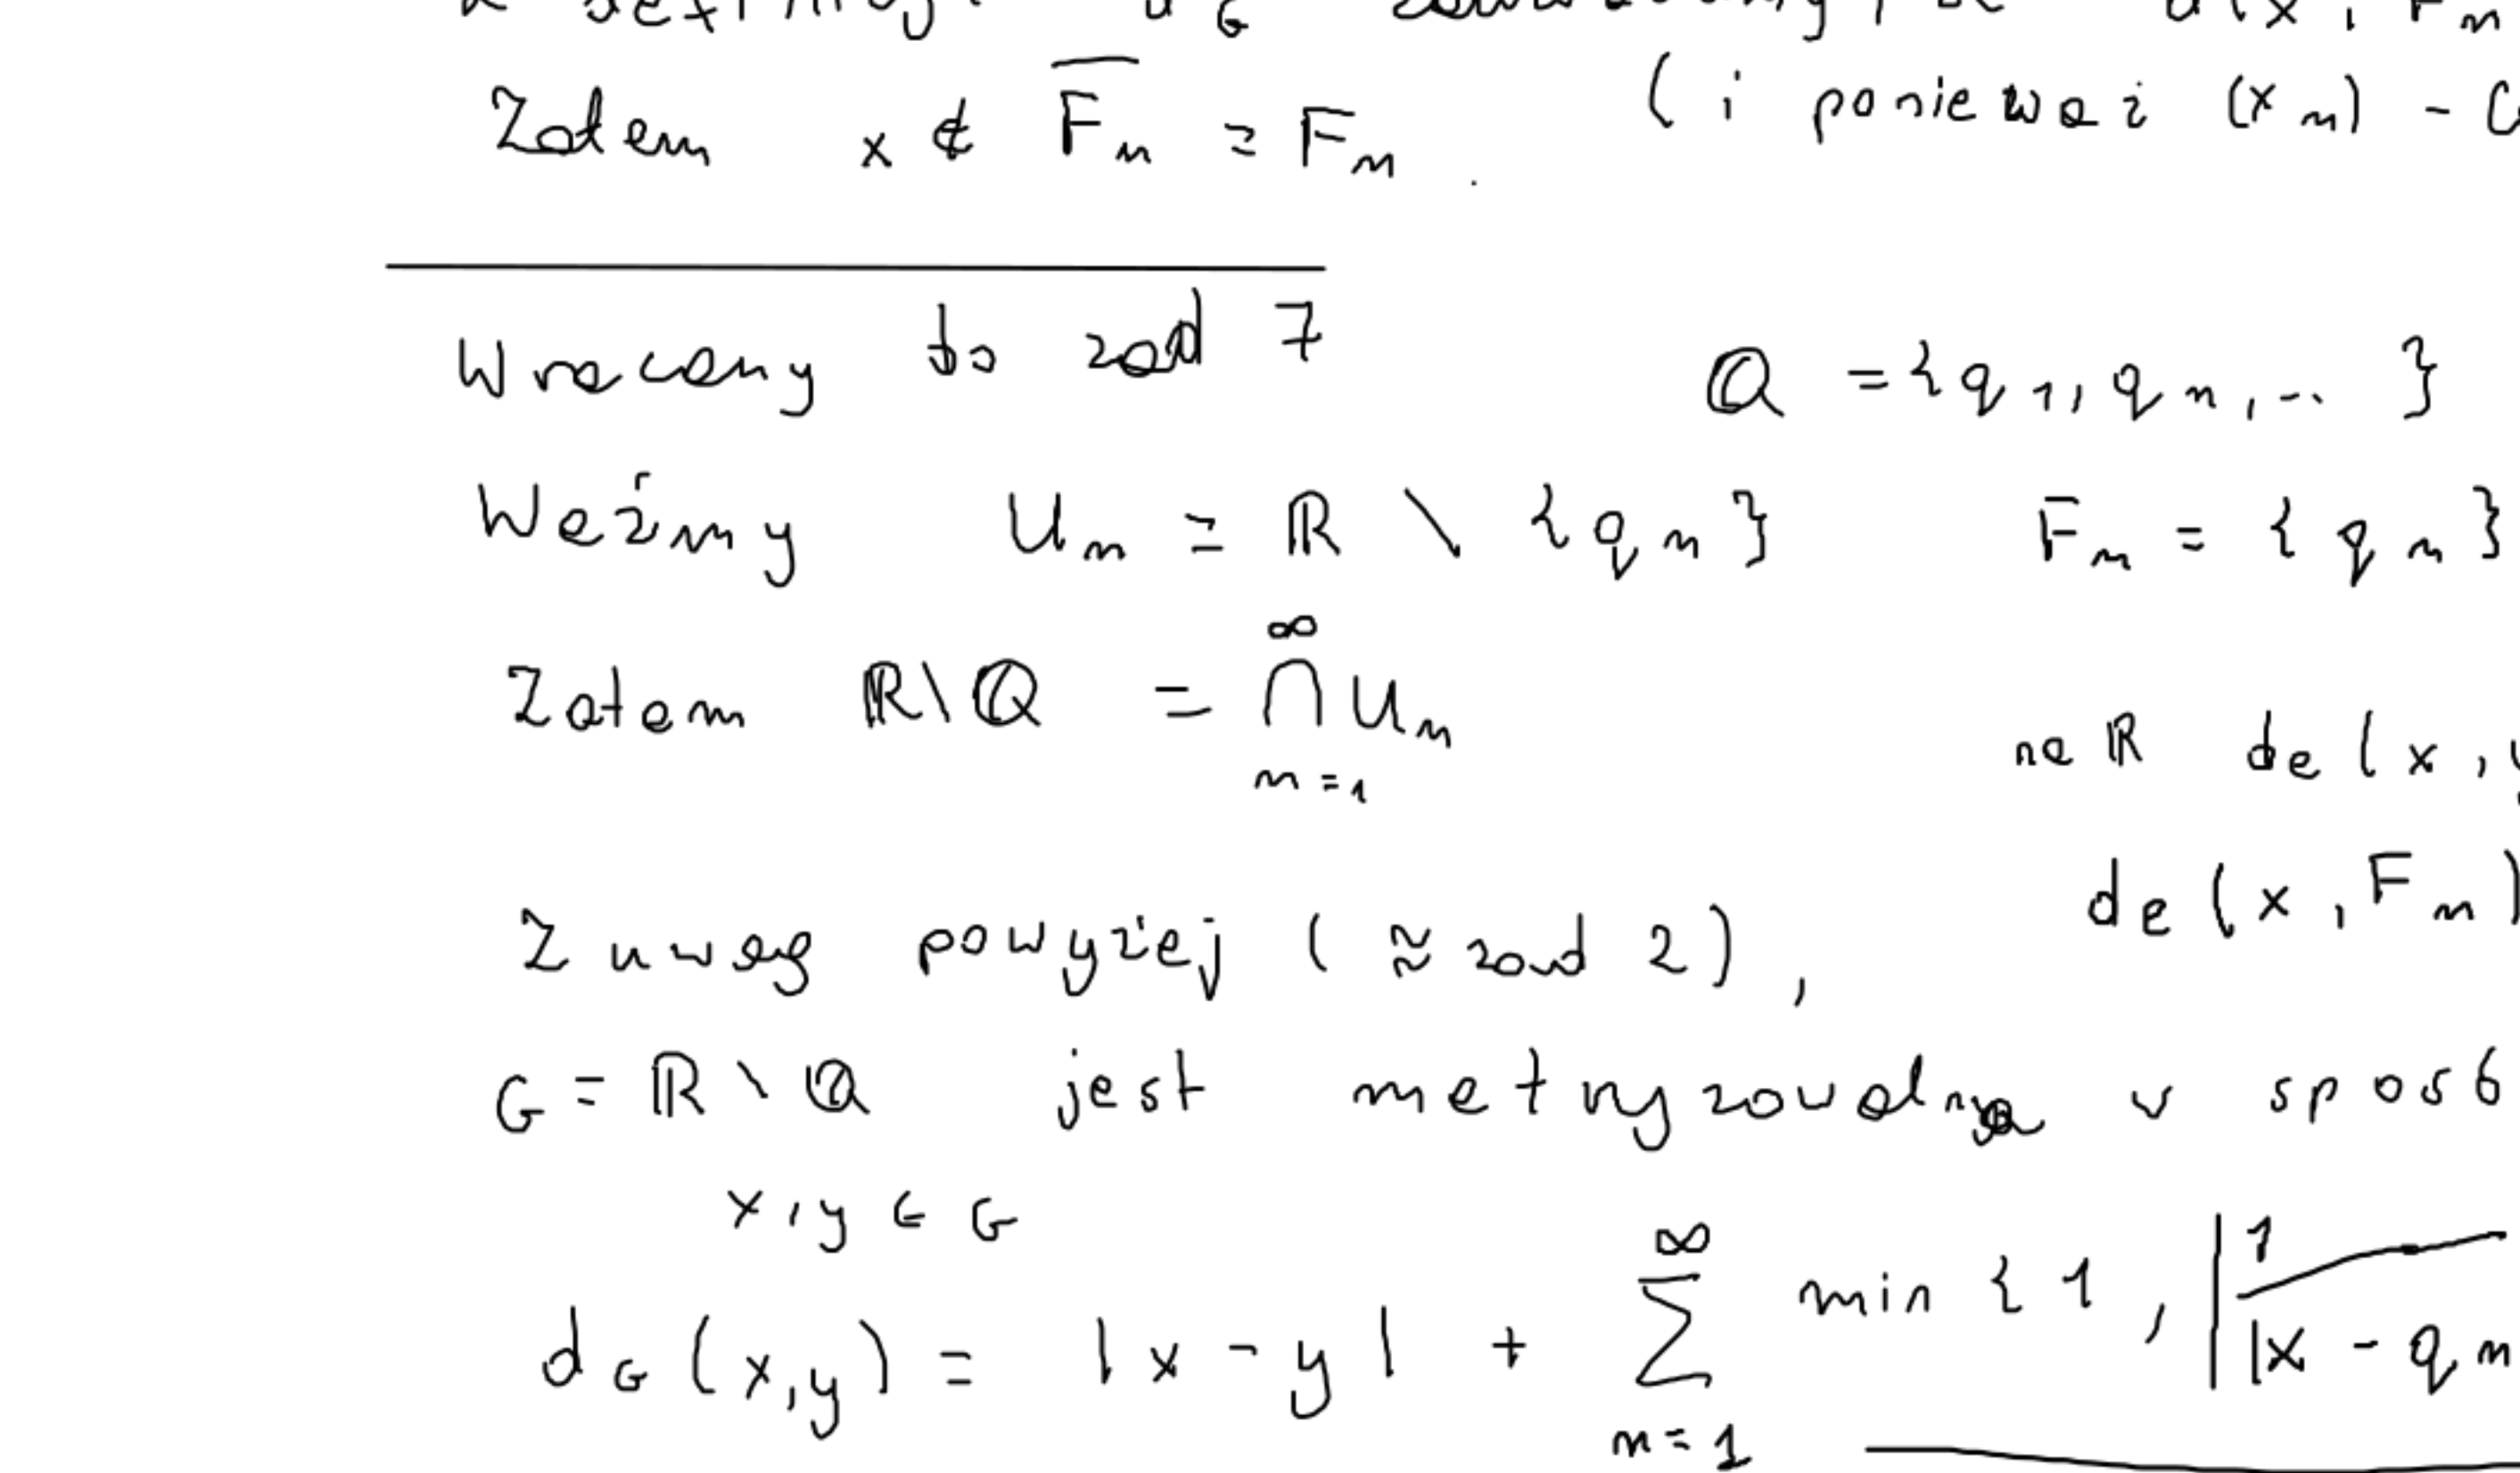 Zatem x ∉ F̅ₙ = Fₙ . ( i ponieważ (xₙ) -
Wracamy do zad 7
ℚ = {q₁,, qₙ, ... }
Weźmy Uₙ = ℝ \ {qₙ} Fₙ = { qₙ }
Zatem ℝ\ℚ = ⋂_{n=1}^{∞} Uₙ
na ℝ de(x,
de(x, Fₙ)
Z uwag powyżej ( ≈ zad 2),
G = ℝ \ ℚ jest metryzowalna w sposó
x, y ∈ G
d_G(x,y) = |x - y| + ∑_{n=1}^{∞} min { 1, | 1 / |x - qₙ